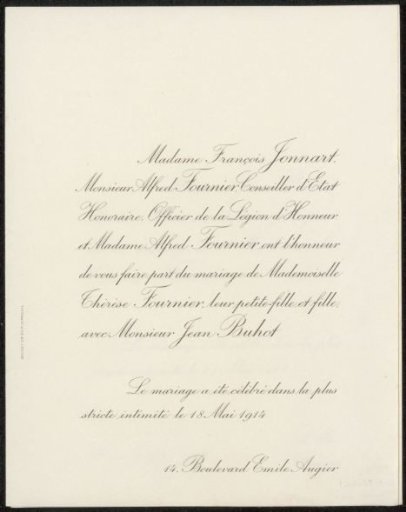 Madame François Jonnart,
Monsieur Alfred Fournier, Conseiller d'Etat
Honoraire, Officier de la Légion d'Honneur
et Madame Alfred Fournier ont l'honneur
de vous faire part du mariage de Mademoiselle
Thérèse Fournier, leur petite-fille et fille,
avec Monsieur Jean Buhot
Le mariage a été célébré dans la plus
stricte intimité le 18 Mai 1914
14, Boulevard Emile Augier